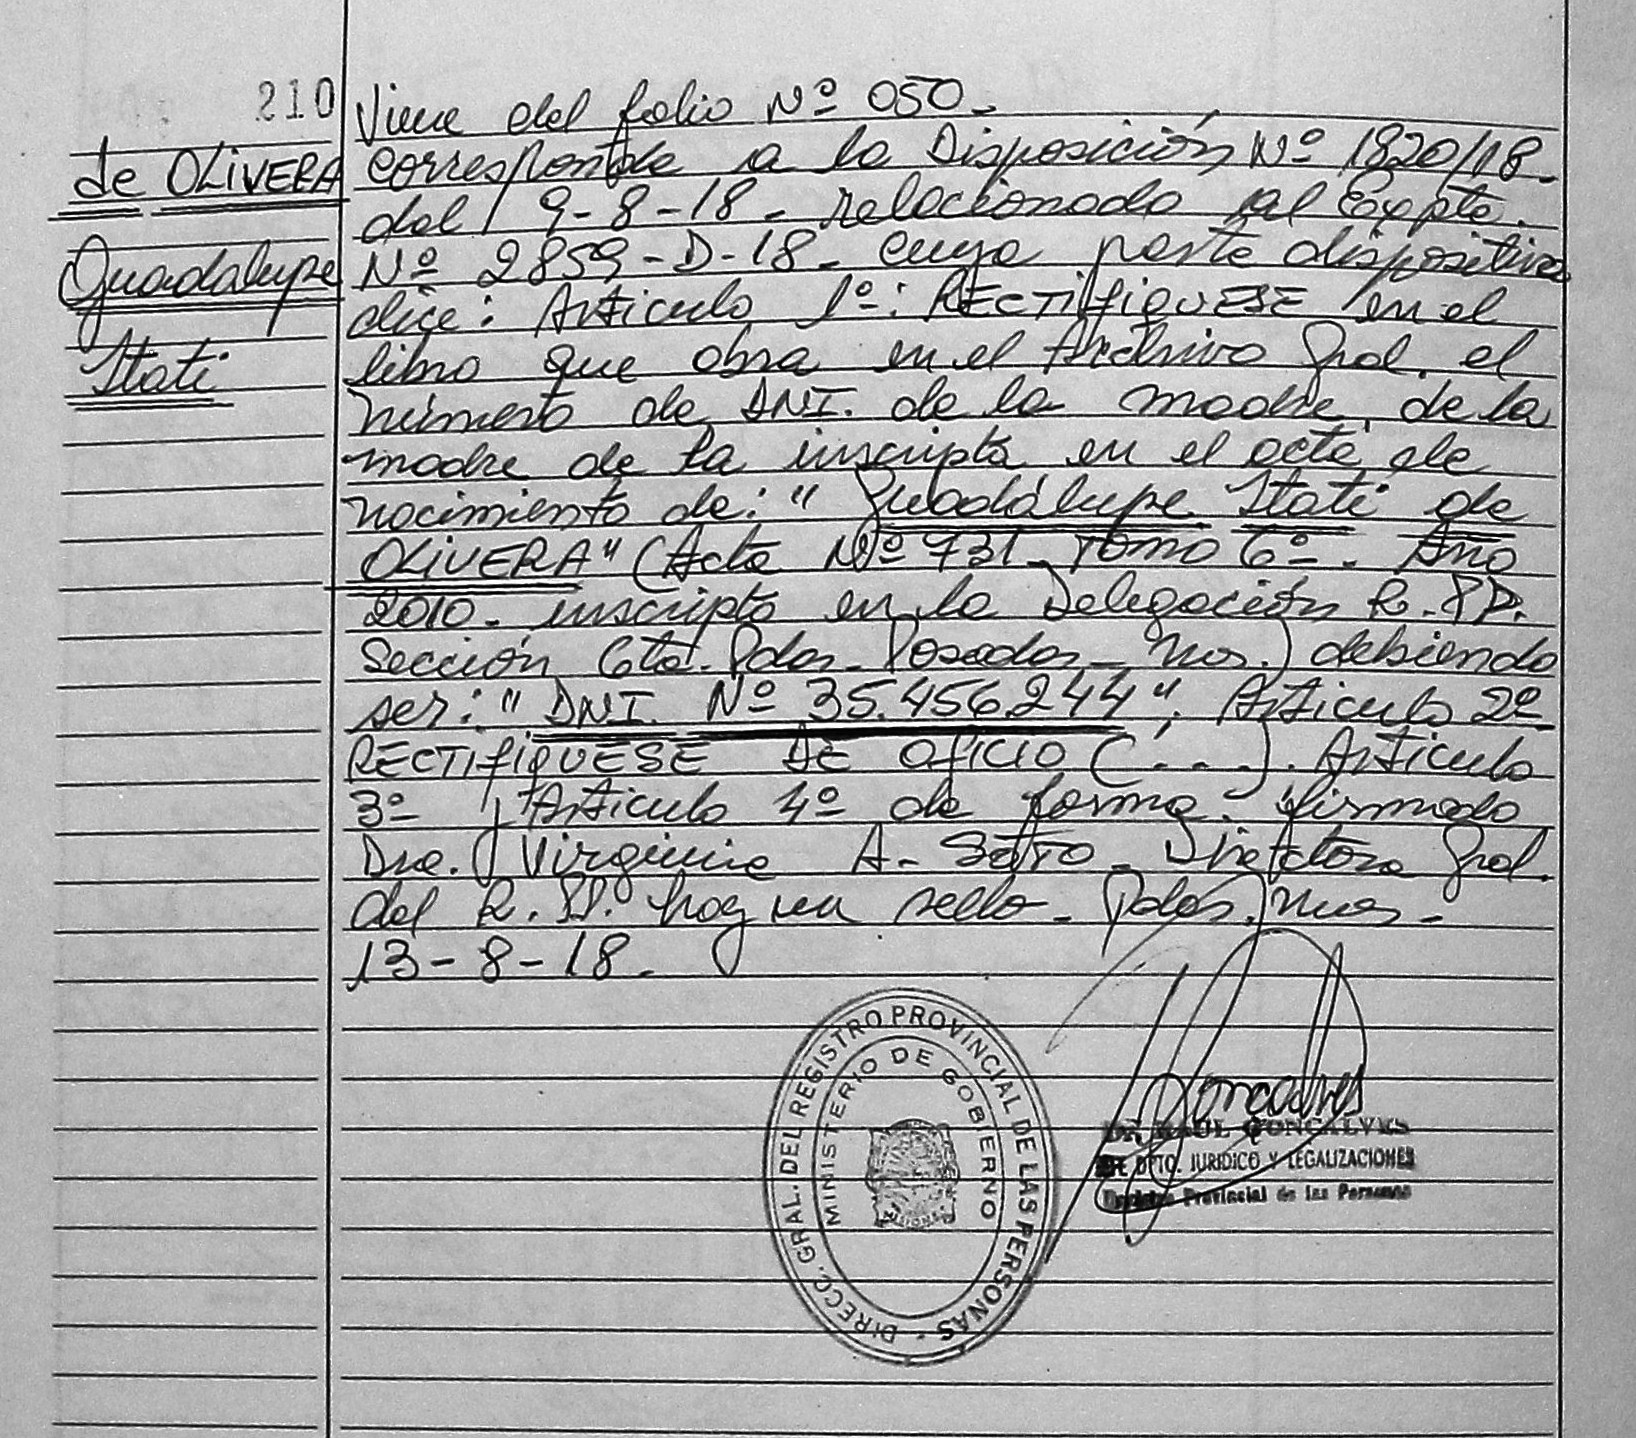 210
de OLIVERA
Guadalupe
Itatí
Viene del folio Nº 050.-
corresponde a la Disposición Nº 1820/18.
del 9-8-18.- relacionado al Expte.
Nº 2859-D-18.- cuya parte dispositiva
dice: Artículo 1º: RECTIFIQUESE en el
libro que obra en el Archivo Gral. el
número de DNI. de la madre, de la
madre de la inscripta en el acta de
nacimiento de: "Guadalupe Itatí de
OLIVERA" (Acta Nº 731 Tomo 6º. Año
2010.- inscripta en la Delegación R.PP.
Sección 6ta. Pdas. Posadas- Mnes.) debiendo
ser: "DNI. Nº 35.456.244". Artículo 2º
RECTIFIQUESE DE OFICIO (...). Artículo
3º y Artículo 4º de forma. firmado
Dra. Virginia A. SOTO - Directora Gral.
del R.PP. hay un sello- Pdas. Mnes-
13-8-18.
DIRECC. GRAL. DEL REGISTRO PROVINCIAL DE LAS PERSONAS
MINISTERIO DE GOBIERNO
Goncalves
Dr. RAUL GONCALVES
DPTO. JURIDICO Y LEGALIZACIONES
Registro Provincial de las Personas